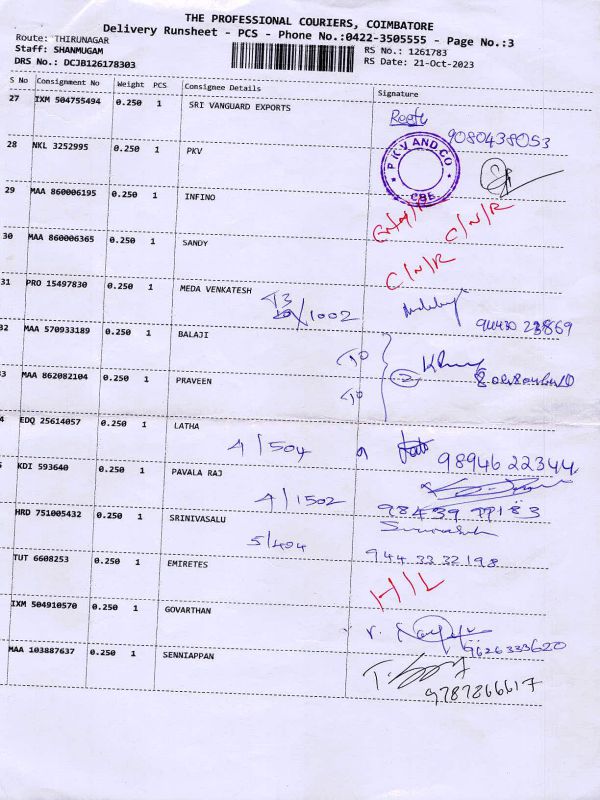 THE PROFESSIONAL COURIERS, COIMBATORE
Delivery Runsheet - PCS - Phone No.:0422-3505555 - Page No.:3
Route: THIRUNAGAR
RS No.: 1261783
Staff: SHANMUGAM
RS Date: 21-Oct-2023
DRS No.: DCJB126178303
S No Consignment No Weight PCS Consignee Details Signature
27 IXM 504755494 0.250 1 SRI VANGUARD EXPORTS
9080438053
28 NKL 3252995 0.250 1 PKV
P K V AND CO
CBE
29 MAA 860006195 0.250 1 INFINO
C/N/R
30 MAA 860006365 0.250 1 SANDY
C/N/R
31 PRO 15497830 0.250 1 MEDA VENKATESH
/1002
32 MAA 570933189 0.250 1 BALAJI
3 MAA 862082104 0.250 1 PRAVEEN
2
4 EDQ 25614057 0.250 1 LATHA
A/504 98946 22344
5 KDI 593640 0.250 1 PAVALA RAJ
A/1502
HRD 751005432 0.250 1 SRINIVASALU
5/404
944 33 32 198
TUT 6608253 0.250 1 EMIRETES
H/L
IXM 504910570 0.250 1 GOVARTHAN
9626333620
MAA 103887637 0.250 1 SENNIAPPAN
9787266617